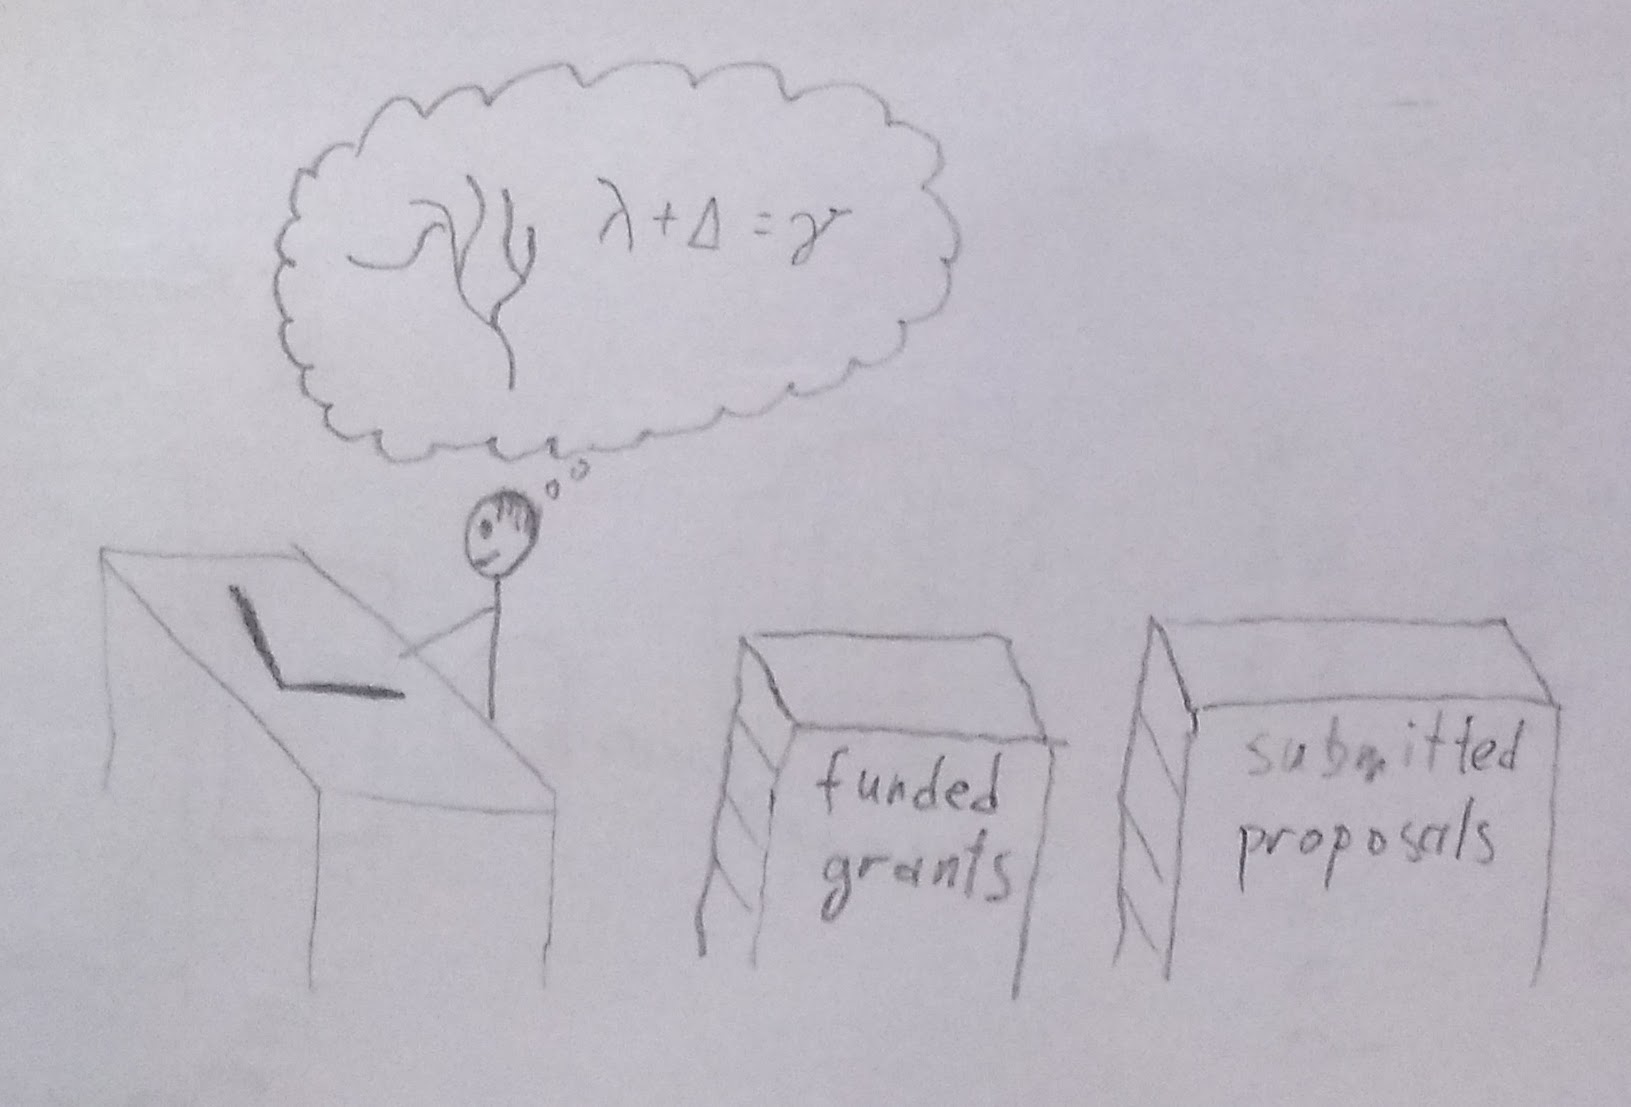 λ + Δ = γ
funded
grants
submitted
proposals